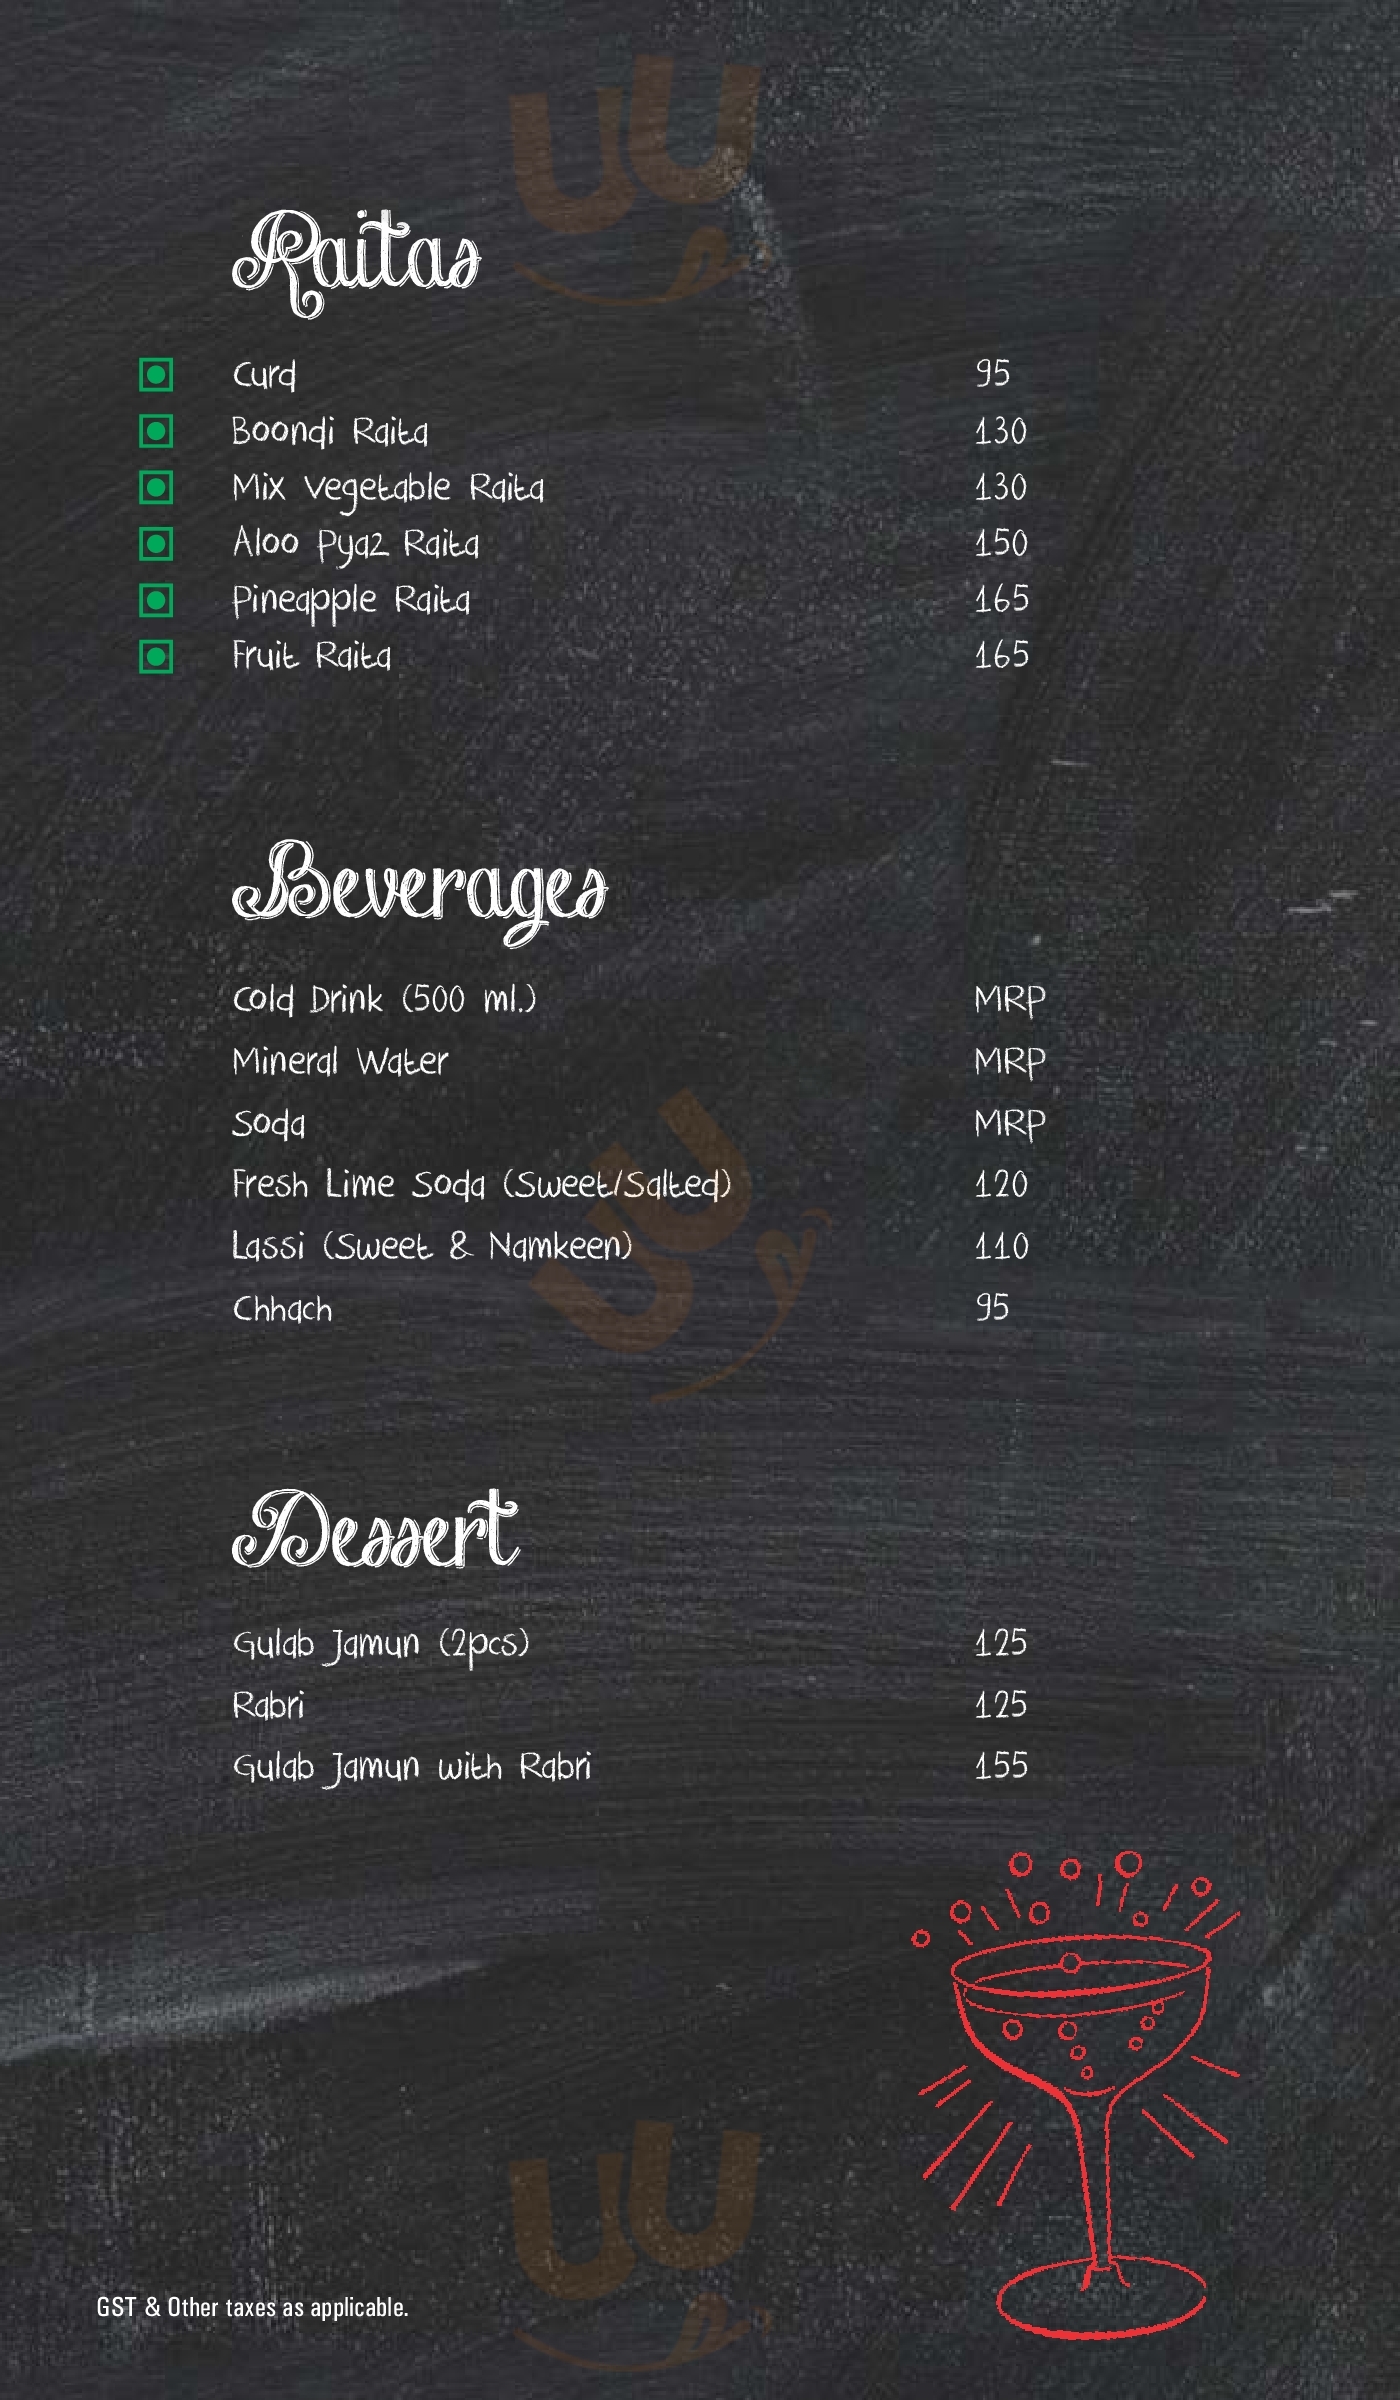 Raitas
Curd 95
Boondi Raita 130
Mix Vegetable Raita 130
Aloo Pyaz Raita 150
Pineapple Raita 165
Fruit Raita 165
Beverages
Cold Drink (500 ml.) MRP
Mineral Water MRP
Soda MRP
Fresh Lime Soda (Sweet/Salted) 120
Lassi (Sweet & Namkeen) 110
Chhach 95
Dessert
Gulab Jamun (2pcs) 125
Rabri 125
Gulab Jamun with Rabri 155
GST & Other taxes as applicable.